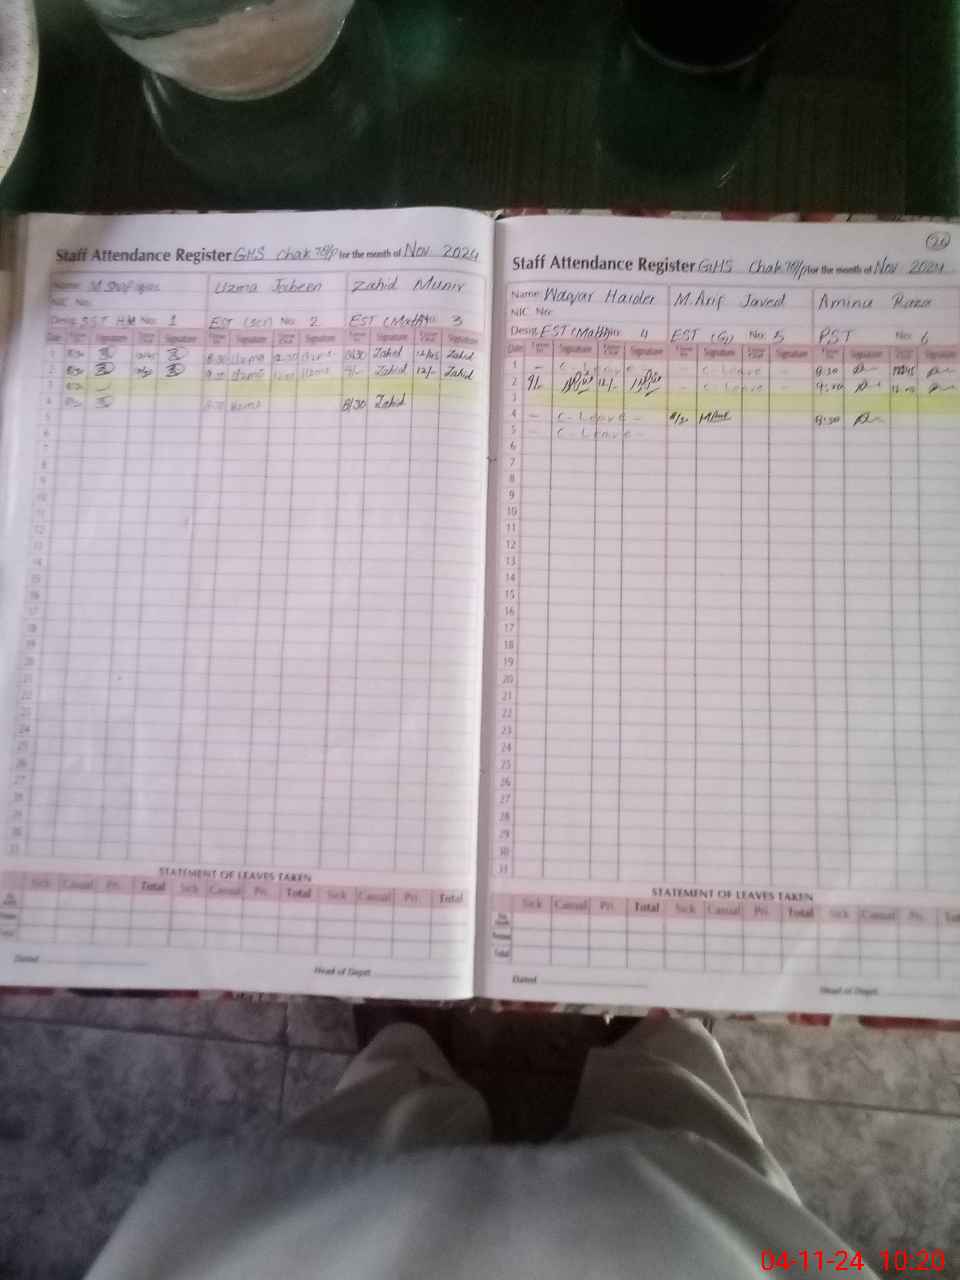 Staff Attendance Register GHS Chak 78/P for the month of Nov 2024
Name: M. Shafique Uzma Jabeen Zahid Munir
NIC No:
Desig: SST H/M No: 1 EST (Sci) No: 2 EST (Math) No: 3
Date Signature Signature Signature Signature Signature Signature
1 8:30 8:30 Uzma 12:30 Uzma 8:30 Zahid Zahid
2 Uzma Uzma 9/- Zahid 12/- Zahid
3
4 Uzma 8/30 Zahid
5
6
7
8
9
10
11
12
13
14
15
16
17
18
19
20
21
22
23
24
25
26
27
28
29
30
31
STATEMENT OF LEAVES TAKEN
Sick Casual Pri. Total Sick Casual Pri. Total Sick Casual Pri. Total
Dated
Head of Deptt.
26
Staff Attendance Register GHS Chak 78/P for the month of Nov 2024
Name: Waqar Haider M. Arif Javed Amina Raza
NIC No:
Desig: EST (Math) No: 4 EST (G) No: 5 PST No: 6
Date Signature Signature Signature Signature Signature Signature
1 - C-Leave - - C-Leave - 8:30
2 9/- 12/- - C-Leave - 9:00 12:00
3
4 - C-Leave - M Arif 8:30
5 - C-Leave -
6
7
8
9
10
11
12
13
14
15
16
17
18
19
20
21
22
23
24
25
26
27
28
29
30
31
STATEMENT OF LEAVES TAKEN
Sick Casual Pri. Total Sick Casual Pri. Total Sick Casual Pri.
Dated
Head of Deptt.
04-11-24 10:20